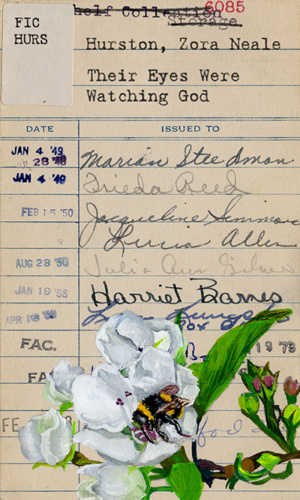 Shelf Collection
6085
Storage
FIC
HURS
Hurston, Zora Neale
Their Eyes Were
Watching God
DATE ISSUED TO
JAN 4 '49 Marian Steedman
28 '49
JAN 4 '49 Frieda Reed
FEB 15 '50 Jacqueline Simmons
Lucia Allen
AUG 28 '50 Julia Ann
JAN 19 '56 Harriet Barnes
APR 18
FAC. 19 '78
FA
FE